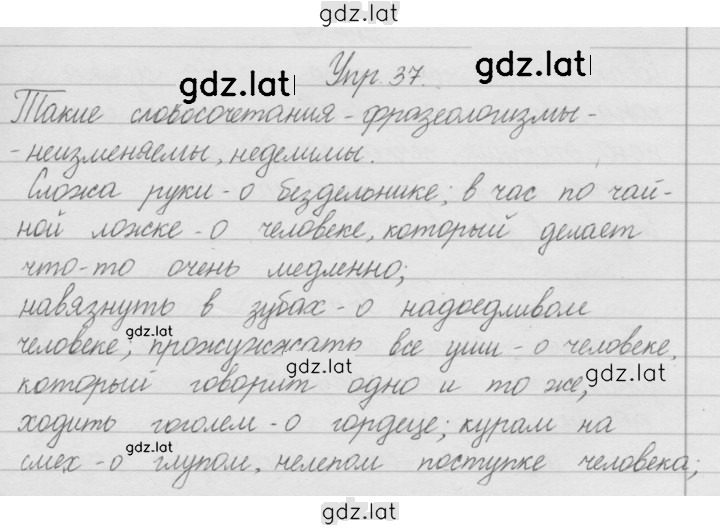 gdz.lat
Упр. 37.
gdz.lat gdz.lat
Такие словосочетания - фразеологизмы -
- неизменяемы, неделимы.
Сложа руки - о бездельнике; в час по чай-
ной ложке - о человеке, который делает
что-то очень медленно;
навязнуть в зубах - о надоедливом
gdz.lat
человеке; прожужжать все уши - о человеке,
gdz.lat gdz.lat
который говорит одно и то же,
ходить гоголем - о гордеце; курам на
gdz.lat
смех - о глупом, нелепом поступке человека;
gdz.lat